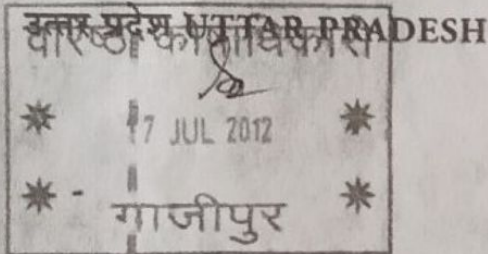 उत्तर प्रदेश UTTAR PRADESH
वरिष्ठ कोषाधिकारी
7 JUL 2012
गाजीपुर